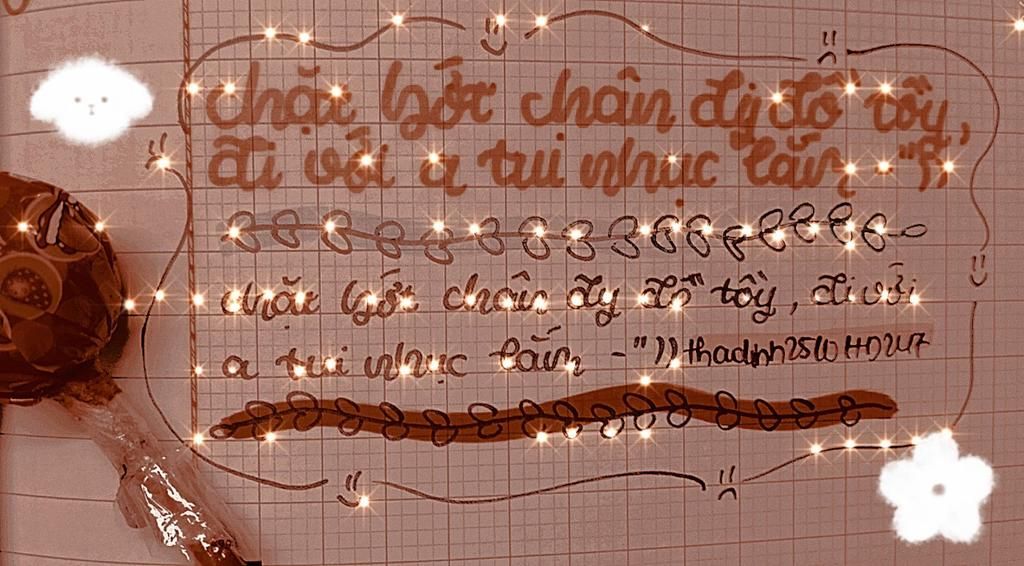 chặt bớt chân đy đồ tồy,
đi với a tui nhục lắm -"))
chặt bớt chân đy đồ tồy, đi với
a tui nhục lắm -")) thadinh25 HD247